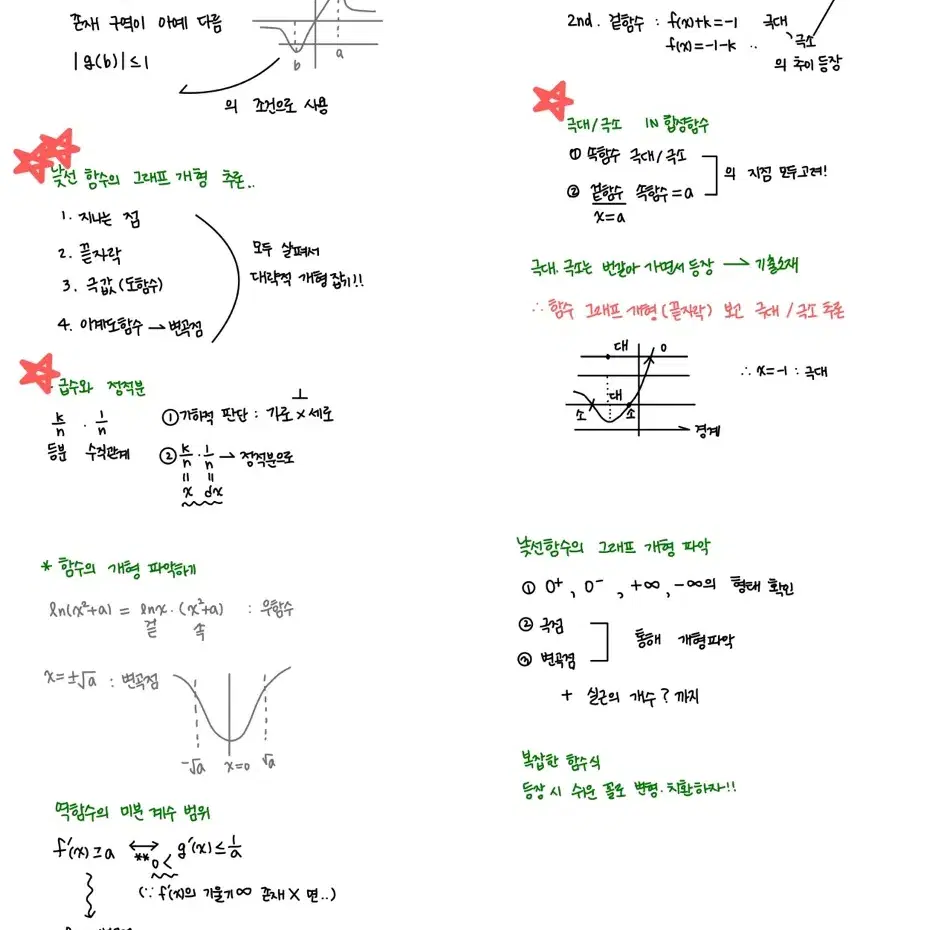 존재 구역이 아예 다름
|g(b)| ≤ 1
b
a
의 조건으로 사용
낯선 함수의 그래프 개형 추론..
1. 지나는 점
2. 끝자락
3. 극값 (도함수)
4. 이계도함수 → 변곡점
모두 살펴서
대략적 개형 잡기!!
· 급수와 정적분
k/n · 1/n
등분 수직관계
① 기하적 판단 : 가로 × 세로
⊥
② k/n · 1/n → 정적분으로
= =
x dx
* 함수의 개형 파악하기
ln(x²+a) = lnx · (x²+a) : 우함수
겉 속
x = ±√a : 변곡점
-√a x=0 √a
역함수의 미분계수 범위
f'(x) ≥ a ⟷ g'(x) ≤ 1/a
** 0 <
(∵ f'(x)의 기울기 ∞ 존재 X 면..)
2nd. 겉함수 : f(x)+k = -1 극대
f(x) = -1-k .. 극소
의 추이 등장
극대/극소 IN 합성함수
① 속함수 극대/극소
② 겉함수 속함수 = a
x = a
의 지점 모두 고려!
극대, 극소는 번갈아 가면서 등장 → 기출소재
∴ 함수 그래프 개형 (끝자락) 보고 극대/극소 추론
대 0
대
소 소
경계
∴ x = -1 : 극대
낯선함수의 그래프 개형 파악
① 0⁺, 0⁻, +∞, -∞의 형태 확인
② 극점
③ 변곡점
통해 개형파악
+ 실근의 개수? 까지
복잡한 함수식
등장 시 쉬운 꼴로 변형·치환하자!!